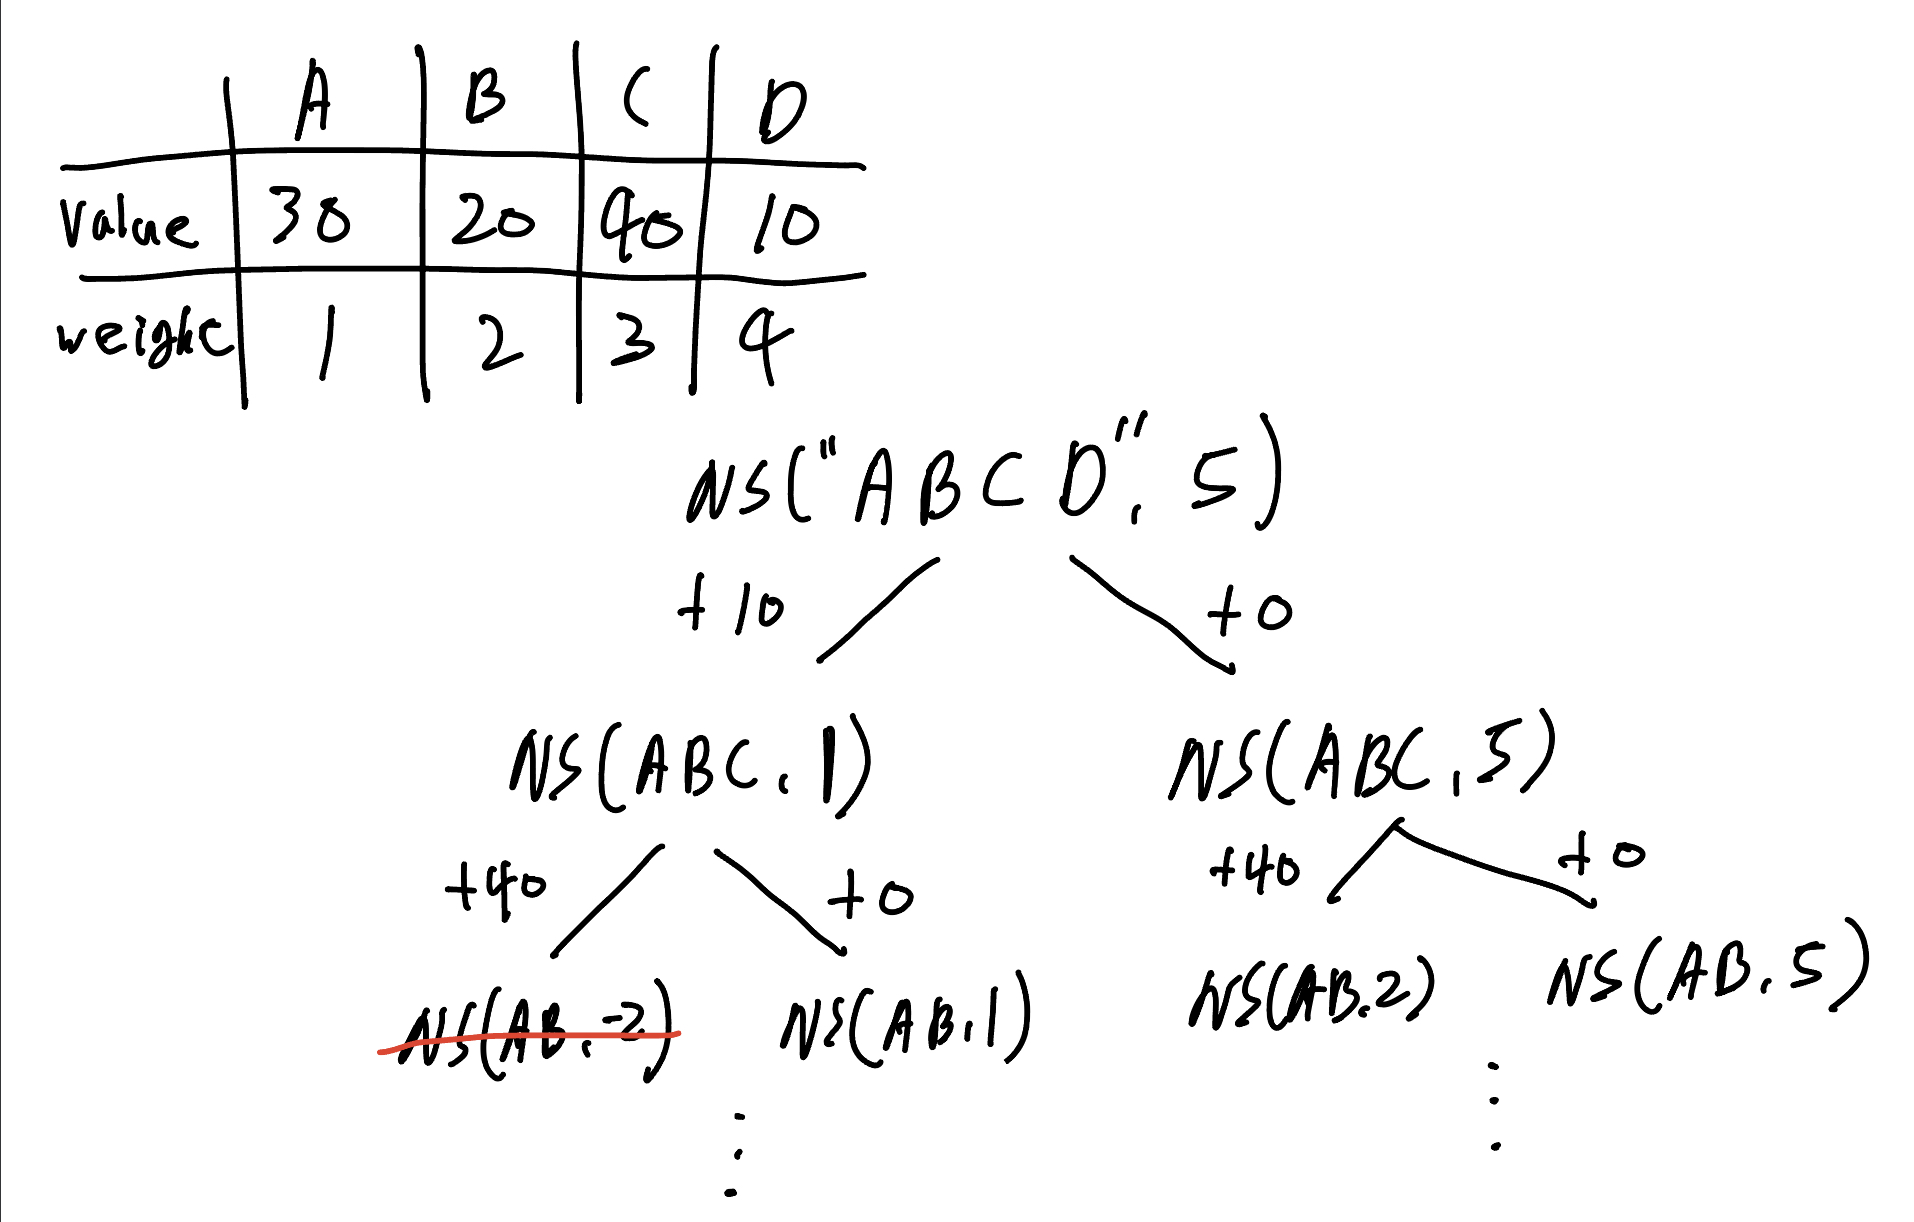 A B C D
Value 30 20 40 10
weight 1 2 3 4
NS("ABCD", 5)
+10 +0
NS(ABC, 1) NS(ABC, 5)
+40 +0 +40 +0
NS(AB, -2) NS(AB, 1) NS(AB, 2) NS(AB, 5)